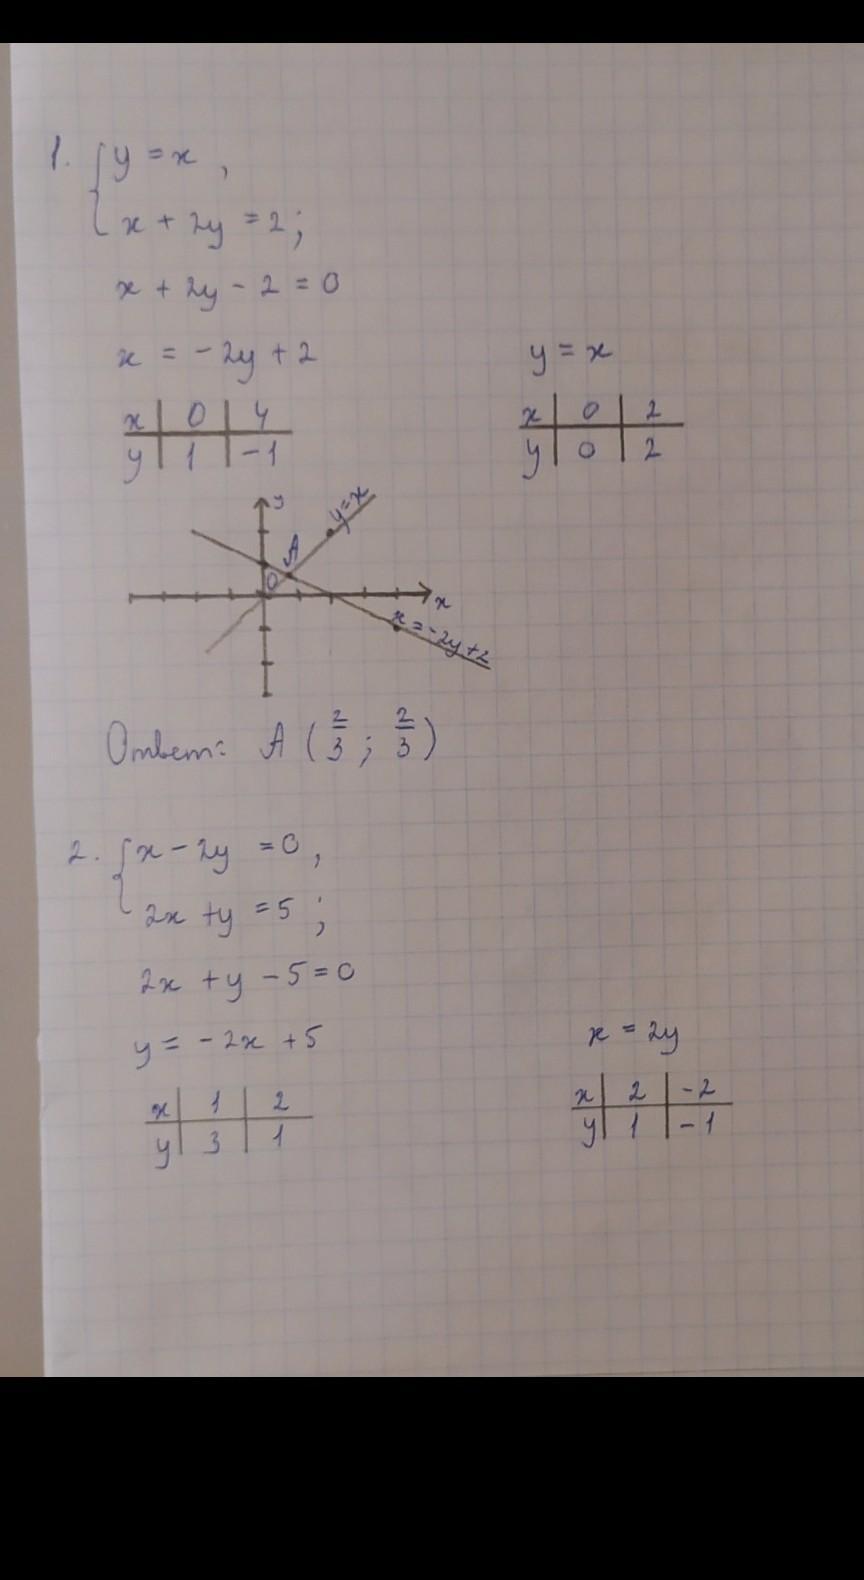 1. { y = x ,
x + 2y = 2 ;
x + 2y - 2 = 0
x = -2y + 2
y = x
x | 0 | 4
y | 1 | -1
x | 0 | 2
y | 0 | 2
y
y=x
A
0
x
x=-2y+2
Ответ: A (2/3 ; 2/3)
2. { x - 2y = 0 ,
2x + y = 5 ;
2x + y - 5 = 0
y = -2x + 5
x = 2y
x | 1 | 2
y | 3 | 1
x | 2 | -2
y | 1 | -1